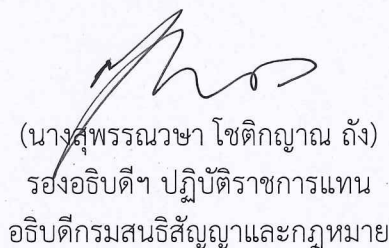 (นางสุพรรณวษา โชติกญาณ ถัง)
รองอธิบดีฯ ปฏิบัติราชการแทน
อธิบดีกรมสนธิสัญญาและกฎหมาย